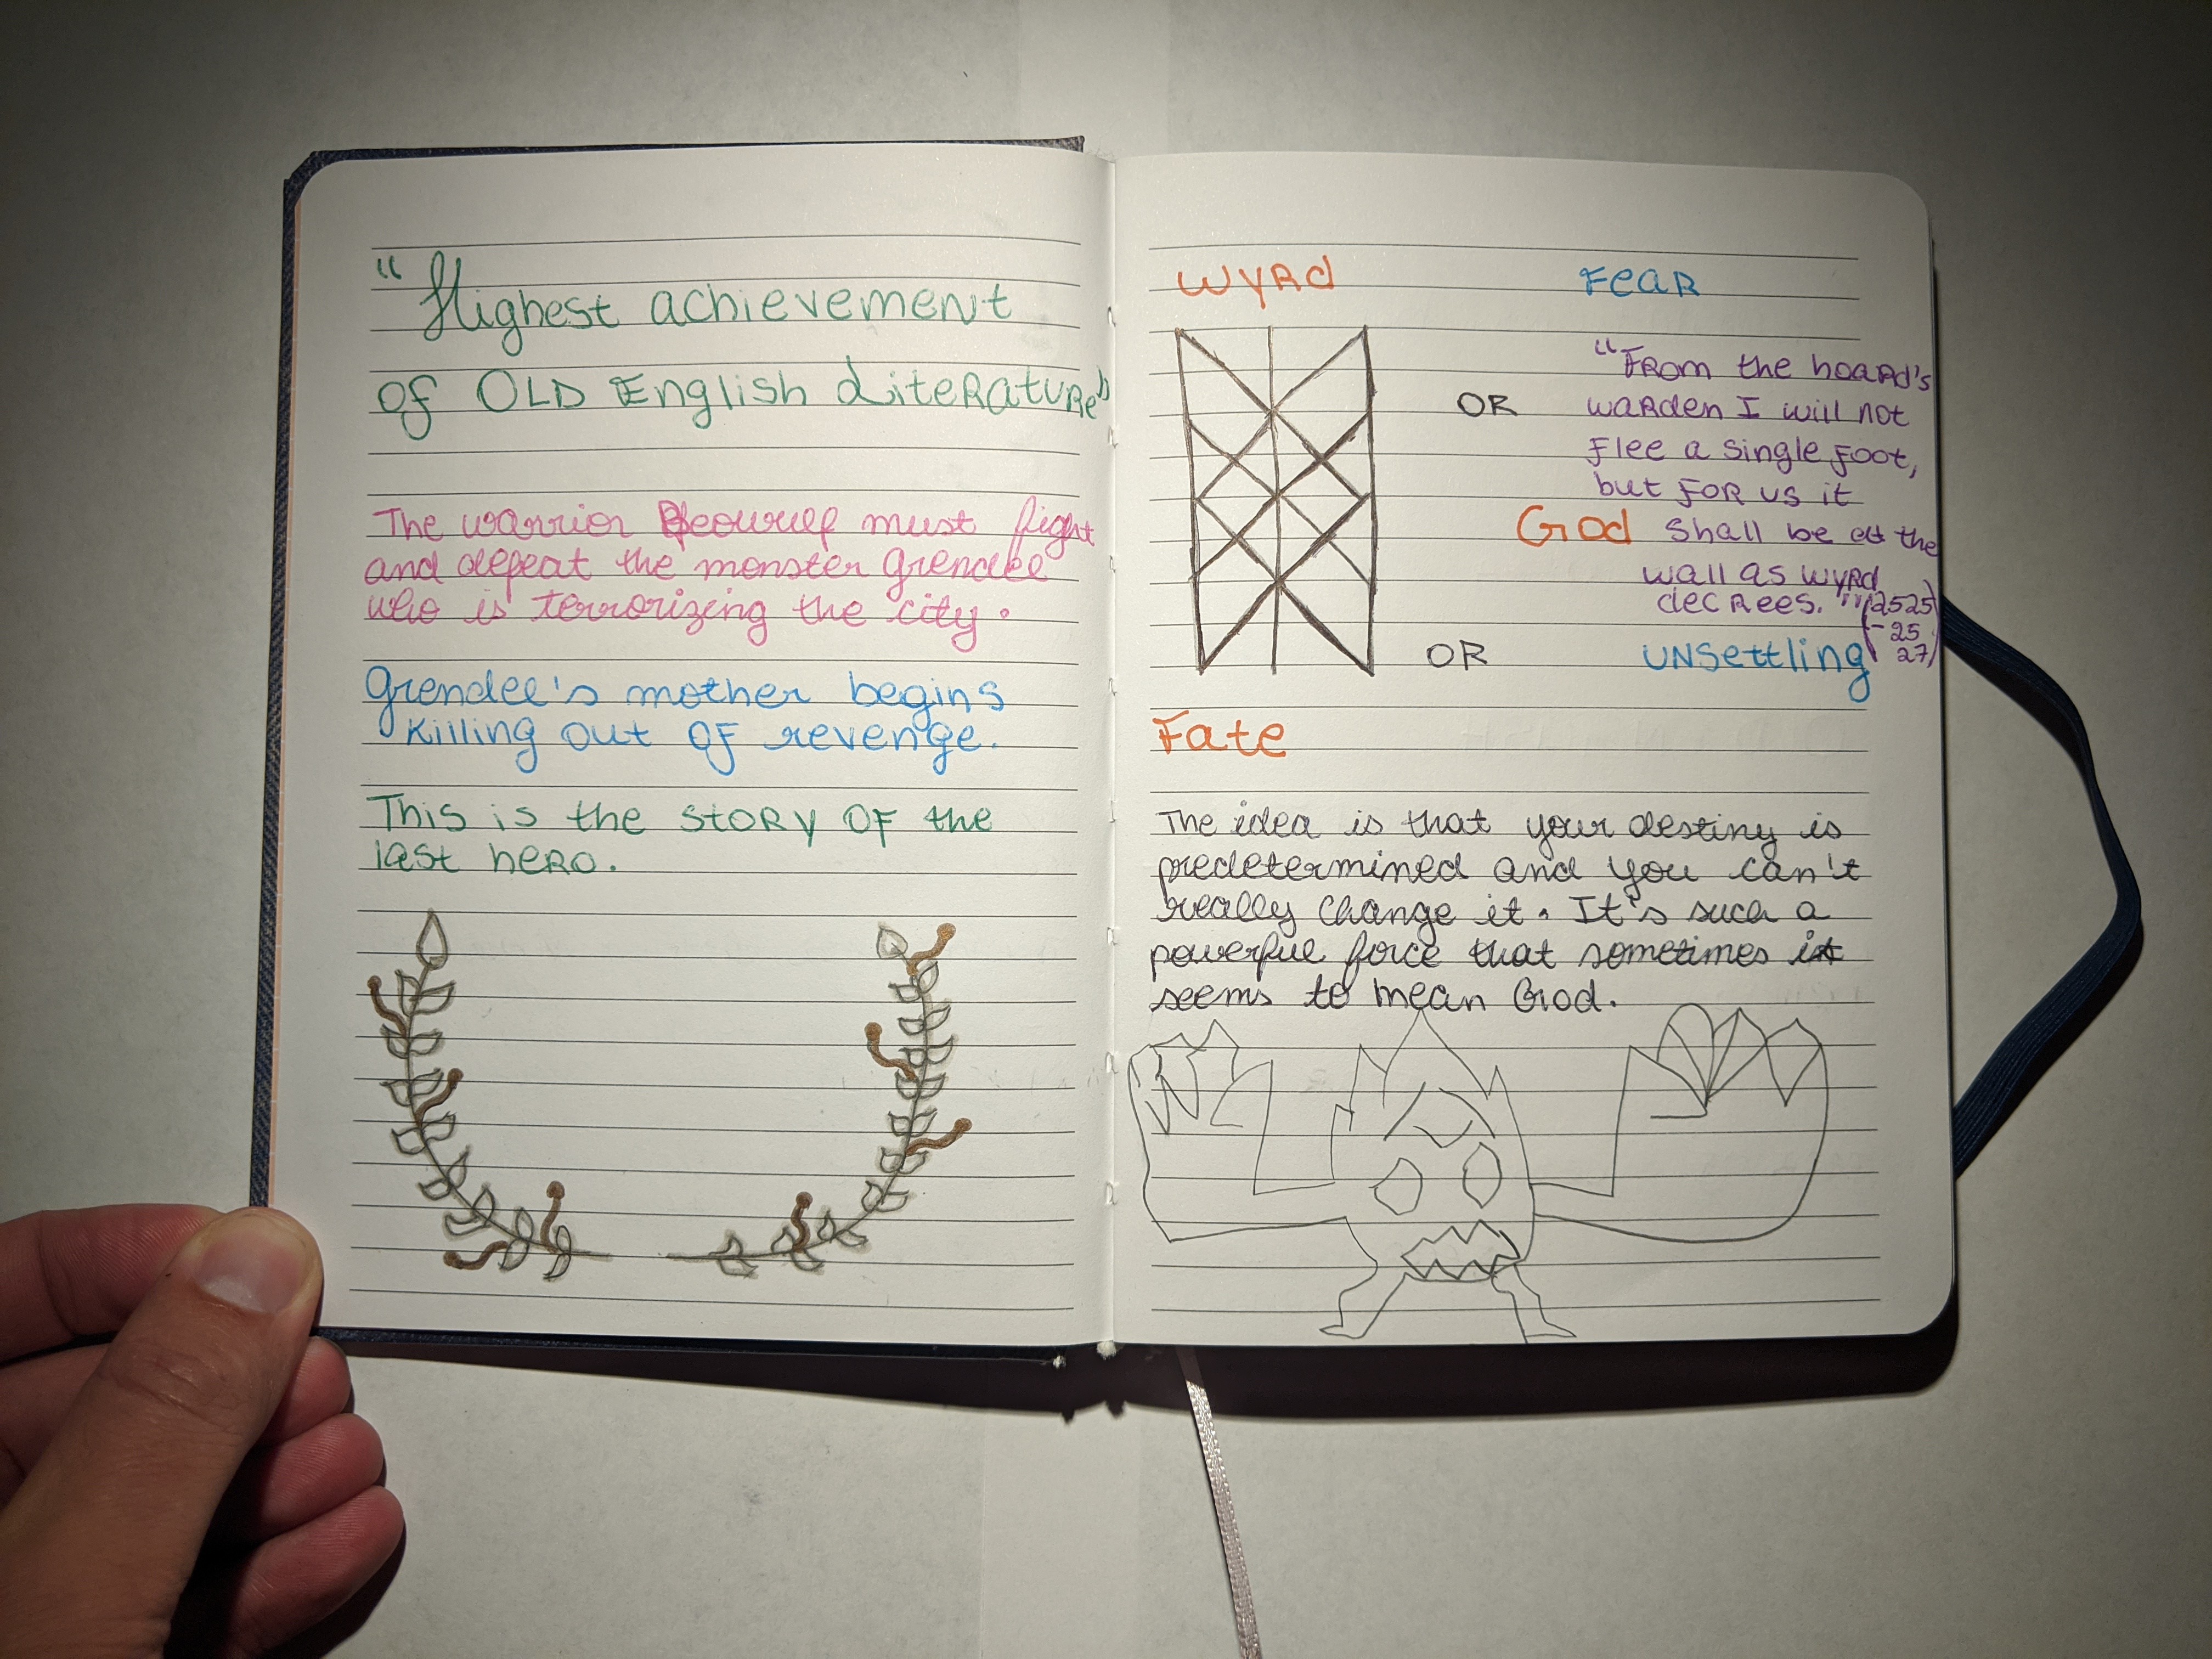 "Highest achievement
of OLD English Literature"
The warrior Beowulf must fight
and defeat the monster Grendel
who is terrorizing the city.
Grendel's mother begins
killing out of revenge.
This is the story of the
last hero.
Wyrd
Fear
"From the hoard's
OR
warden I will not
flee a single foot,
but for us it
God
shall be at the
wall as wyrd
decrees." (2525
-25
27)
OR
unsettling
Fate
The idea is that your destiny is
predetermined and you can't
really change it. It's such a
powerful force that sometimes it
seems to mean God.